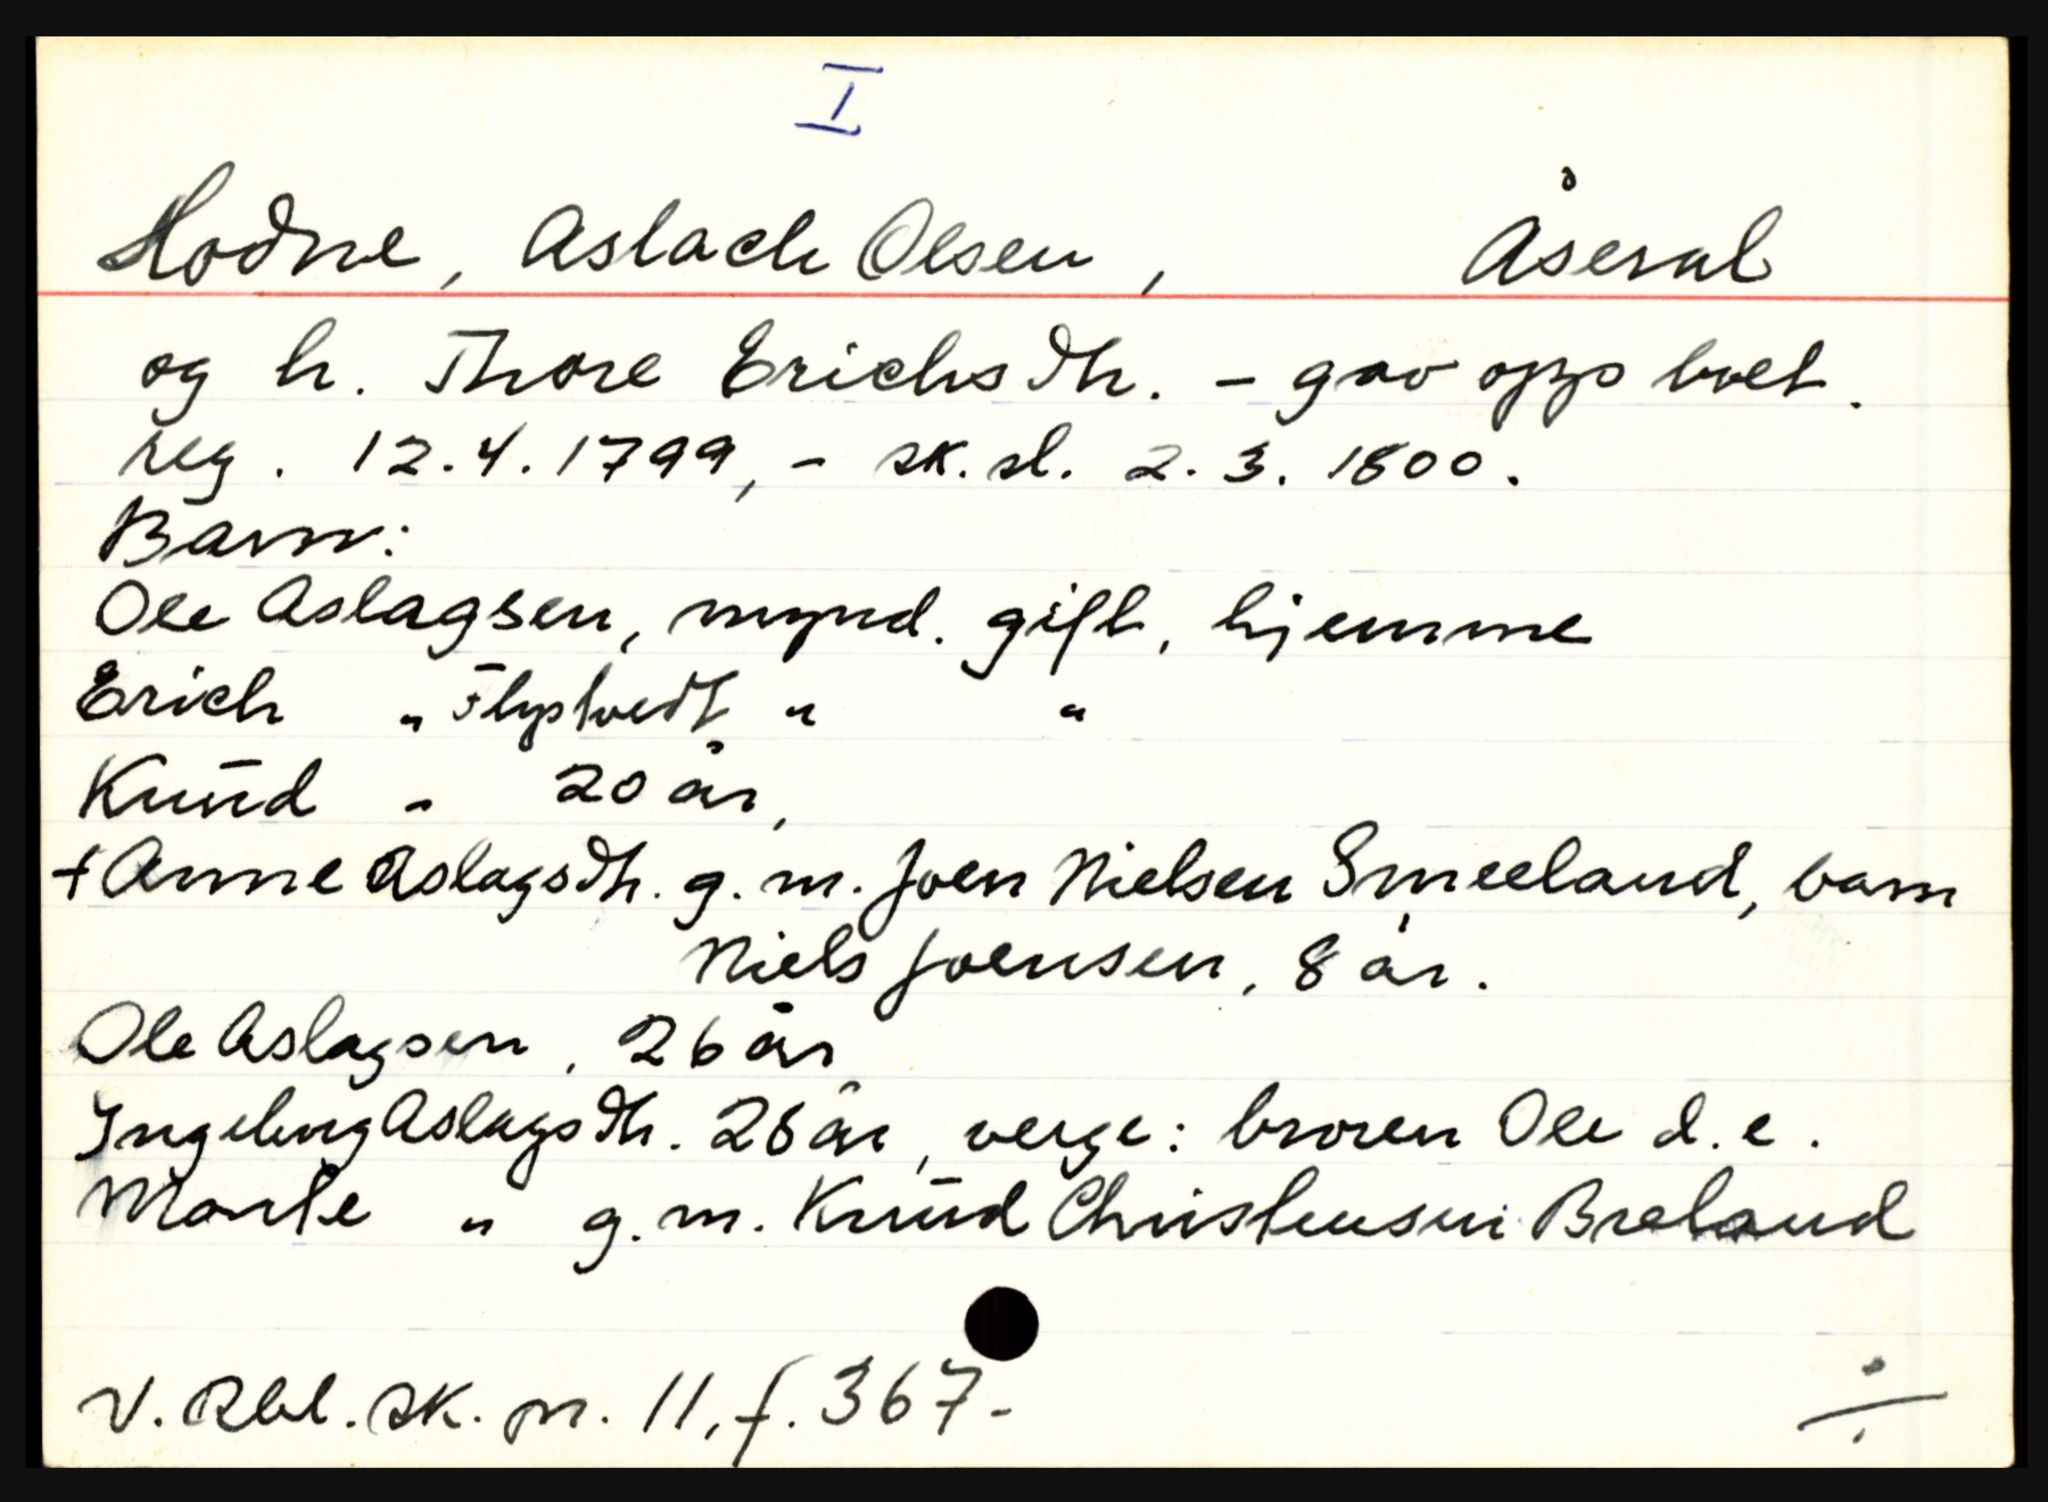 I
Hodne, Aslach Olsen, Åseral
og h. Thore Erichsdtr. - gav opp boet.
reg. 12.4.1799, - sk.sl. 2.3.1800.
Barn:
Ole Aslagsen, mynd. gift, hjemme
Erich " Flystvedt " "
Knud " 20 år,
+ Anne Aslagsdtr. g.m. Joen Nielsen Smeeland, barn
Niels Joensen, 8 år.
Ole Aslagsen, 26 år
Ingeborg Aslagsdtr. 28 år, verge: broren Ole d.e.
Marte " g.m. Knud Christensen Breland
V. Rbl. sk. pr. 11, f. 367-
÷